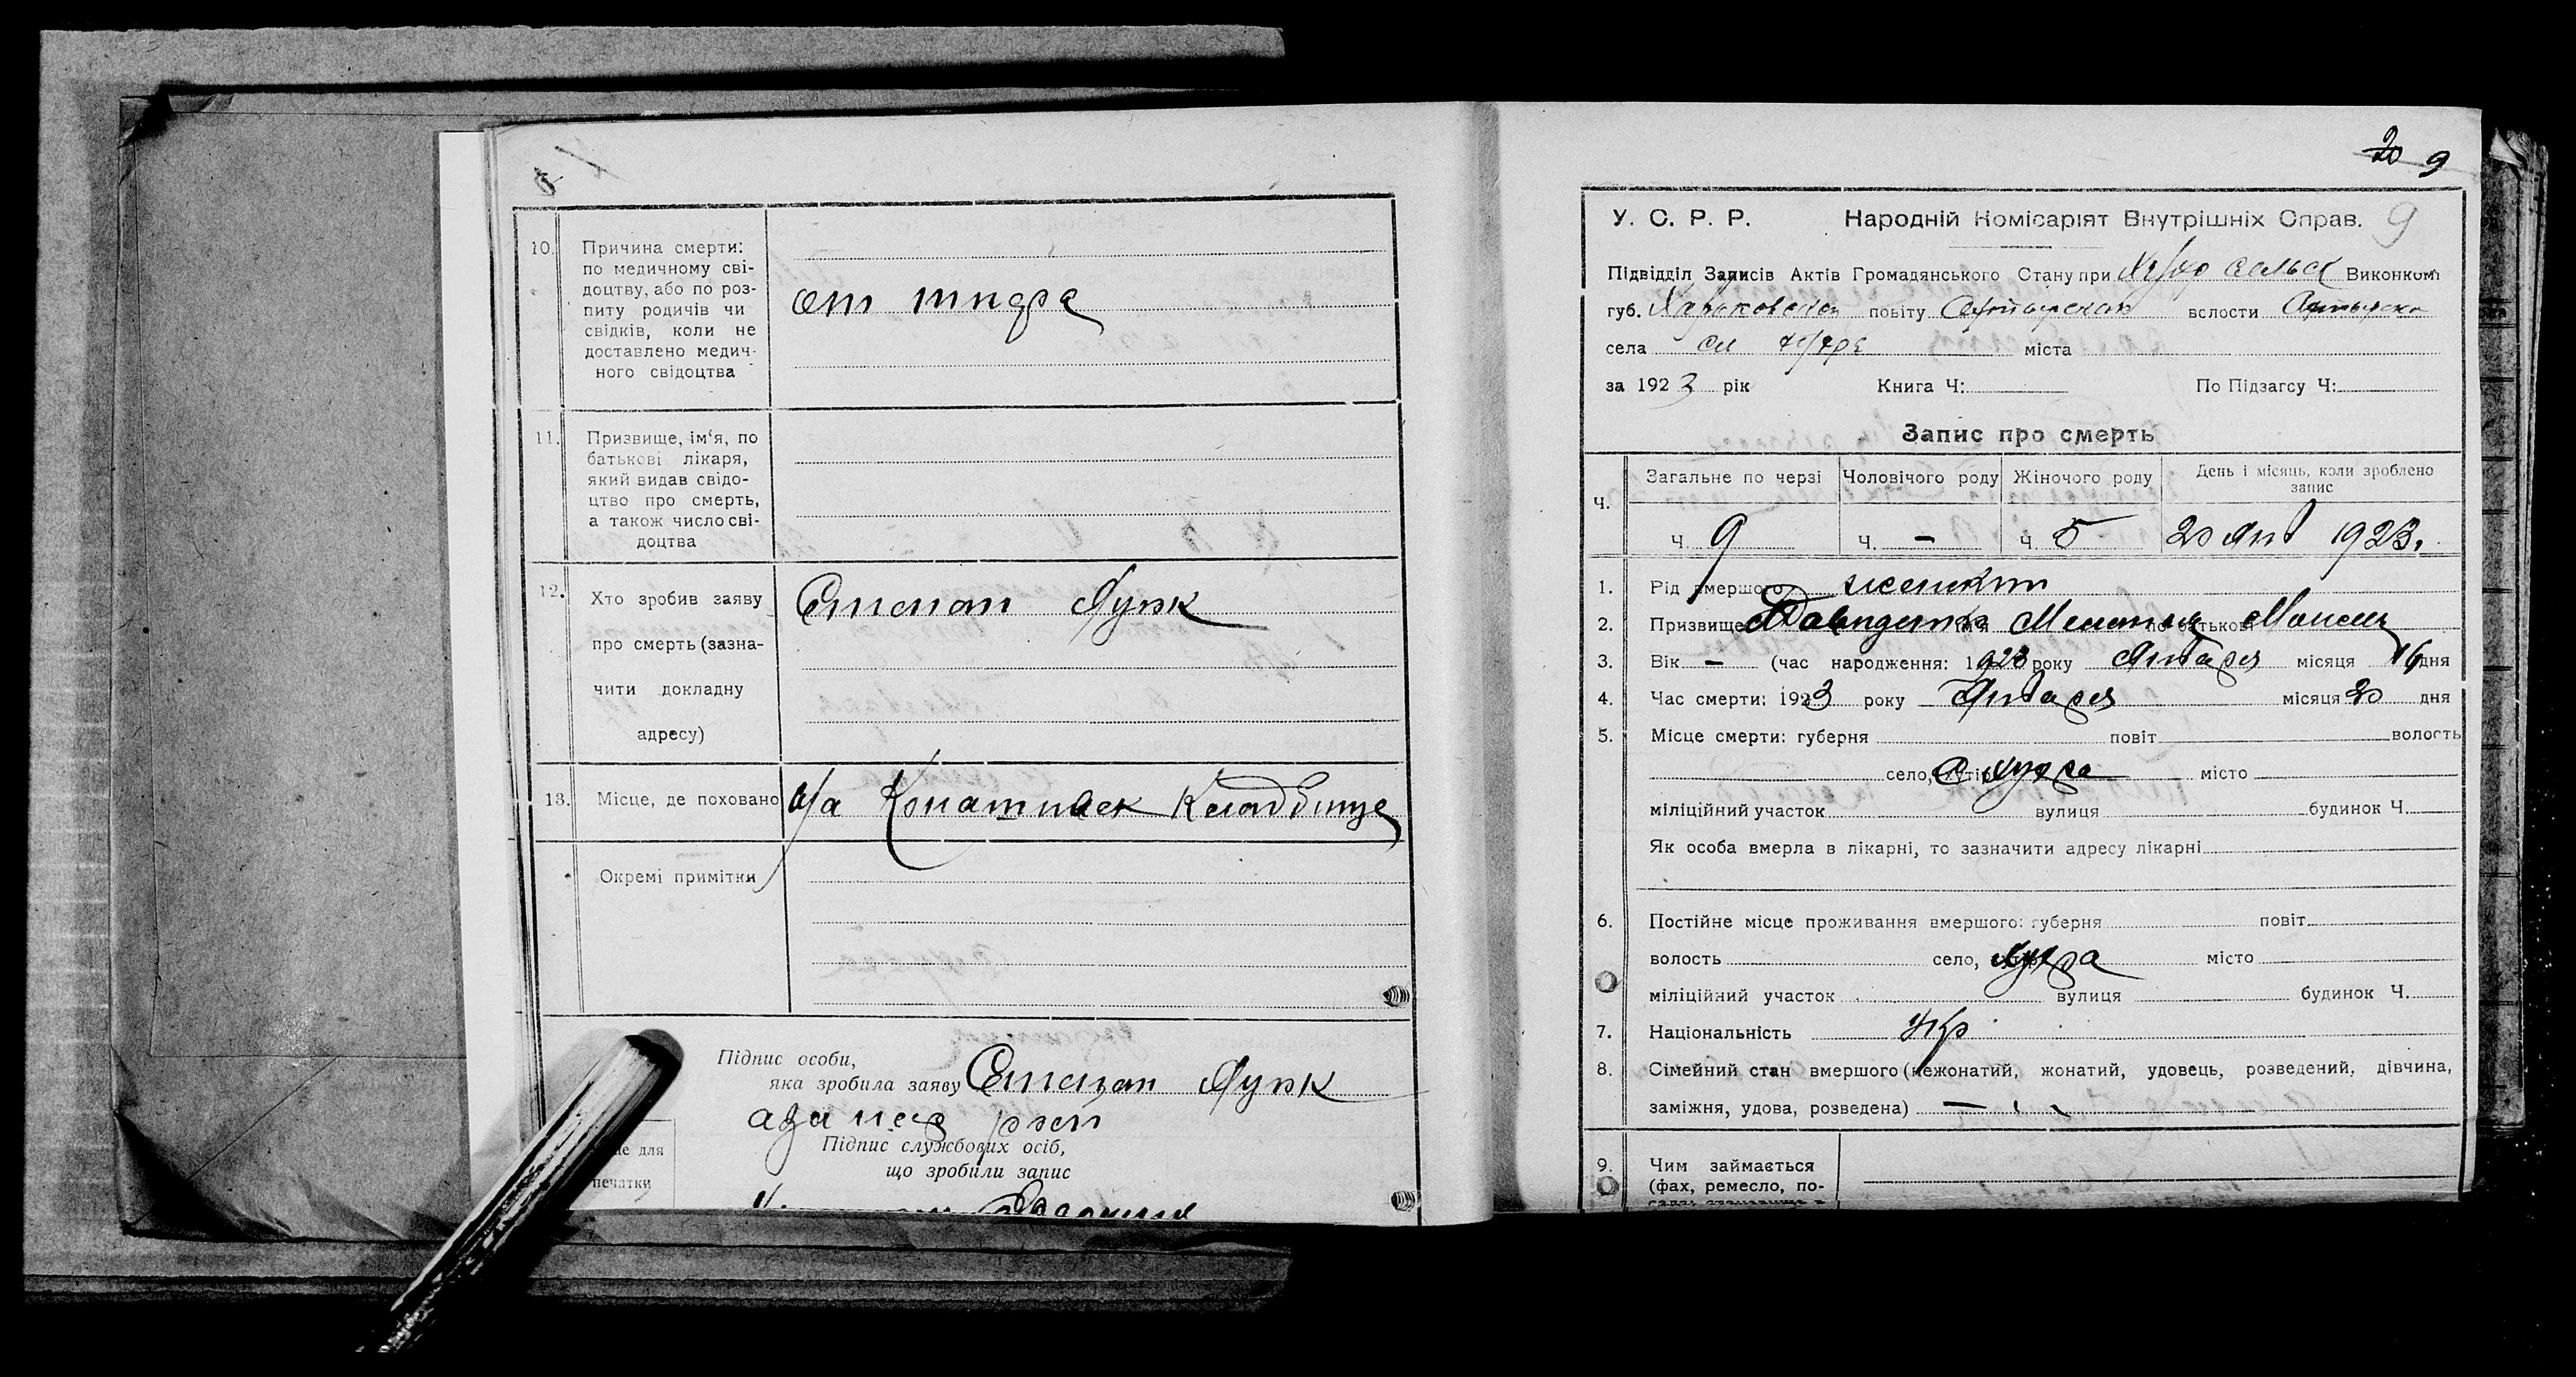 10. Причина смерти:
по медичному сві-
доцтву, або по роз-
питу родичів чи
свідків, коли не
доставлено медич-
ного свідоцтва
от тифа
11. Призвище, ім‘я, по
батькові лікаря,
який видав свідо-
цтво про смерть,
а також число сві-
доцтва
12. Хто зробив заяву
про смерть (зазна-
чити докладну
адресу)
Степан
13. Місце, де поховано на кладбище
Окремі примітки
Підпис особи,
яка зробила заяву Степан
Підпис службових осіб,
що зробили запис
для
печатки
20 9
У. С. Р. Р. Народній Комісаріят Внутрішніх Справ. 9
Підвідділ Записів Актів Громадянського Стану при сельск Виконкомі
губ. Харьковской повіту Ахтырской волости Ахтырско
села міста
за 1923 рік Книга Ч: По Підзагсу Ч:
Запис про смерть
Ч. Загальне по черзі Чоловічого роду Жіночого роду День і місяць, коли зроблено
запис
ч. 9 ч. – ч. 5 20 Янв 1923.
1. Рід вмершого женский
2. Призвище по батькові
3. Вік – (час народження: 1923 року Января місяця 16 дня
4. Час смерти: 1923 року Января місяця 20 дня
5. Місце смерти: губерня повіт волость
село, Хухра місто
міліційний участок вулиця будинок Ч.
Як особа вмерла в лікарні, то зазначити адресу лікарні
6. Постійне місце проживання вмершого: губерня повіт
волость село, Хухра місто
міліційний участок вулиця будинок Ч.
7. Національність Укр
8. Сімейний стан вмершого (нежонатий, жонатий, удовець, розведений, дівчина,
заміжня, удова, розведена) –
9. Чим займається
(фах, ремесло, по-